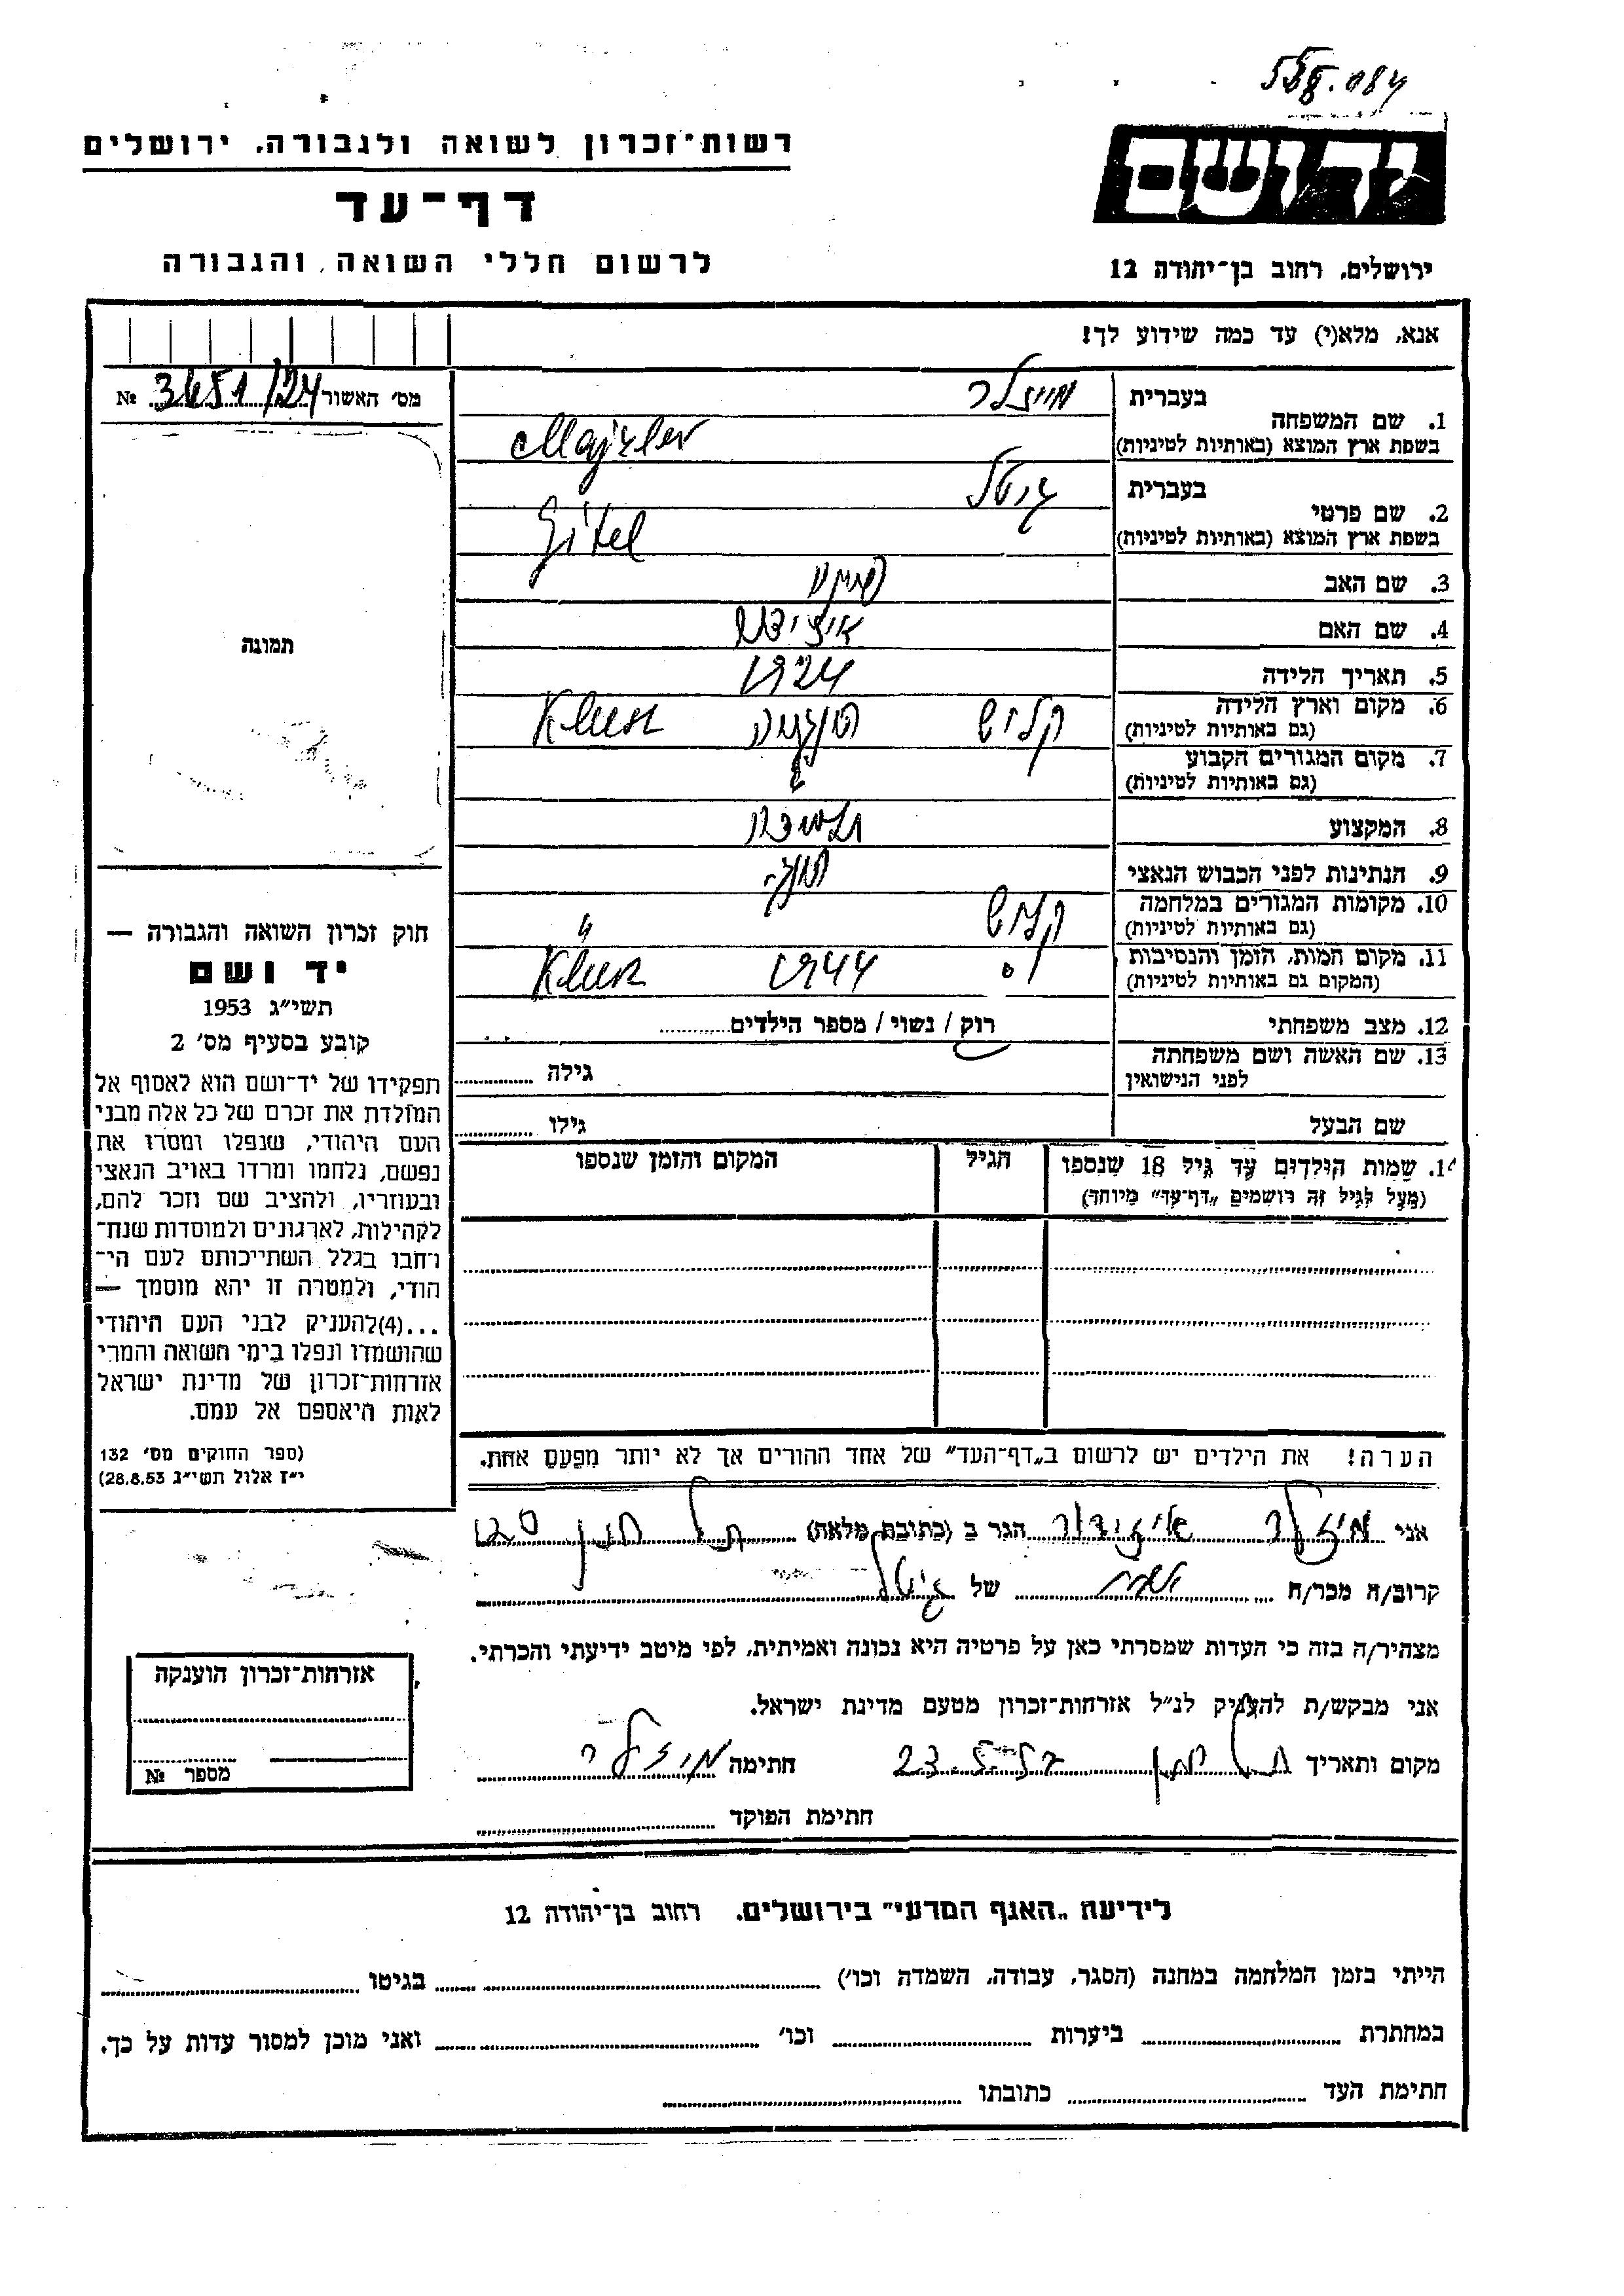 רשות־זכרון לשואה ולגבורה, ירושלים
דף־עד
לרשום חללי השואה והגבורה
יד ושם
ירושלים, רחוב בן־יהודה 12
אנא, מלא(י) עד כמה שידוע לך!
מס' האשור 3651/24 №
תמונה
1. שם המשפחה
בעברית מייזלר
בשפת ארץ המוצא (באותיות לטיניות) Majzler
2. שם פרטי
בעברית גיטל
בשפת ארץ המוצא (באותיות לטיניות) Gitel
3. שם האב
4. שם האם
5. תאריך הלידה 1924
6. מקום וארץ הלידה
(גם באותיות לטיניות) קלוש Kluzs
7. מקום המגורים הקבוע
(גם באותיות לטיניות) "
8. המקצוע
9. הנתינות לפני הכבוש הנאצי
10. מקומות המגורים במלחמה
(גם באותיות לטיניות) קלוש "
11. מקום המות, הזמן והנסיבות
(המקום גם באותיות לטיניות) 1944 Kluzs
12. מצב משפחתי רוק / נשוי / מספר הילדים
13. שם האשה ושם משפחתה
לפני הנישואין גילה
שם הבעל גילו
14. שמות הילדים עד גיל 18 שנספו
(מעל לגיל זה רושמים „דף־עד" מיוחד)
הגיל
המקום והזמן שנספו
חוק זכרון השואה והגבורה —
יד ושם
תשי"ג 1953
קובע בסעיף מס' 2
תפקידו של יד־ושם הוא לאסוף אל
המולדת את זכרם של כל אלה מבני
העם היהודי, שנפלו ומסרו את
נפשם, נלחמו ומרדו באויב הנאצי
ובעוזריו, ולהציב שם וזכר להם,
לקהילות, לארגונים ולמוסדות שנח־
רבו בגלל השתייכותם לעם הי־
הודי, ולמטרה זו יהא מוסמך —
...(4)להעניק לבני העם היהודי
שהושמדו ונפלו בימי השואה והמרי
אזרחות־זכרון של מדינת ישראל
לאות היאספם אל עמם.
(ספר החוקים מס' 132
י"ז אלול תשי"ג 28.8.53)
הערה! את הילדים יש לרשום ב„דף־העד" של אחד ההורים אך לא יותר מפעם אחת.
אני מיזלר איזידור הגר ב (כתובת מלאה) תל חנן 120
קרוב/ה מכר/ה של גיטל
מצהיר/ה בזה כי העדות שמסרתי כאן על פרטיה היא נכונה ואמיתית, לפי מיטב ידיעתי והכרתי.
אני מבקש/ת להעניק לנ"ל אזרחות־זכרון מטעם מדינת ישראל.
מקום ותאריך תל חנן 23.5.57 חתימה מיזלר
חתימת הפוקד
אזרחות־זכרון הוענקה
מספר №
לידיעת „האגף המדעי" בירושלים, רחוב בן־יהודה 12
הייתי בזמן המלחמה במחנה (הסגר, עבודה, השמדה וכו') בגיטו
במחתרת ביערות וכו' ואני מוכן למסור עדות על כך.
חתימת העד כתובתו